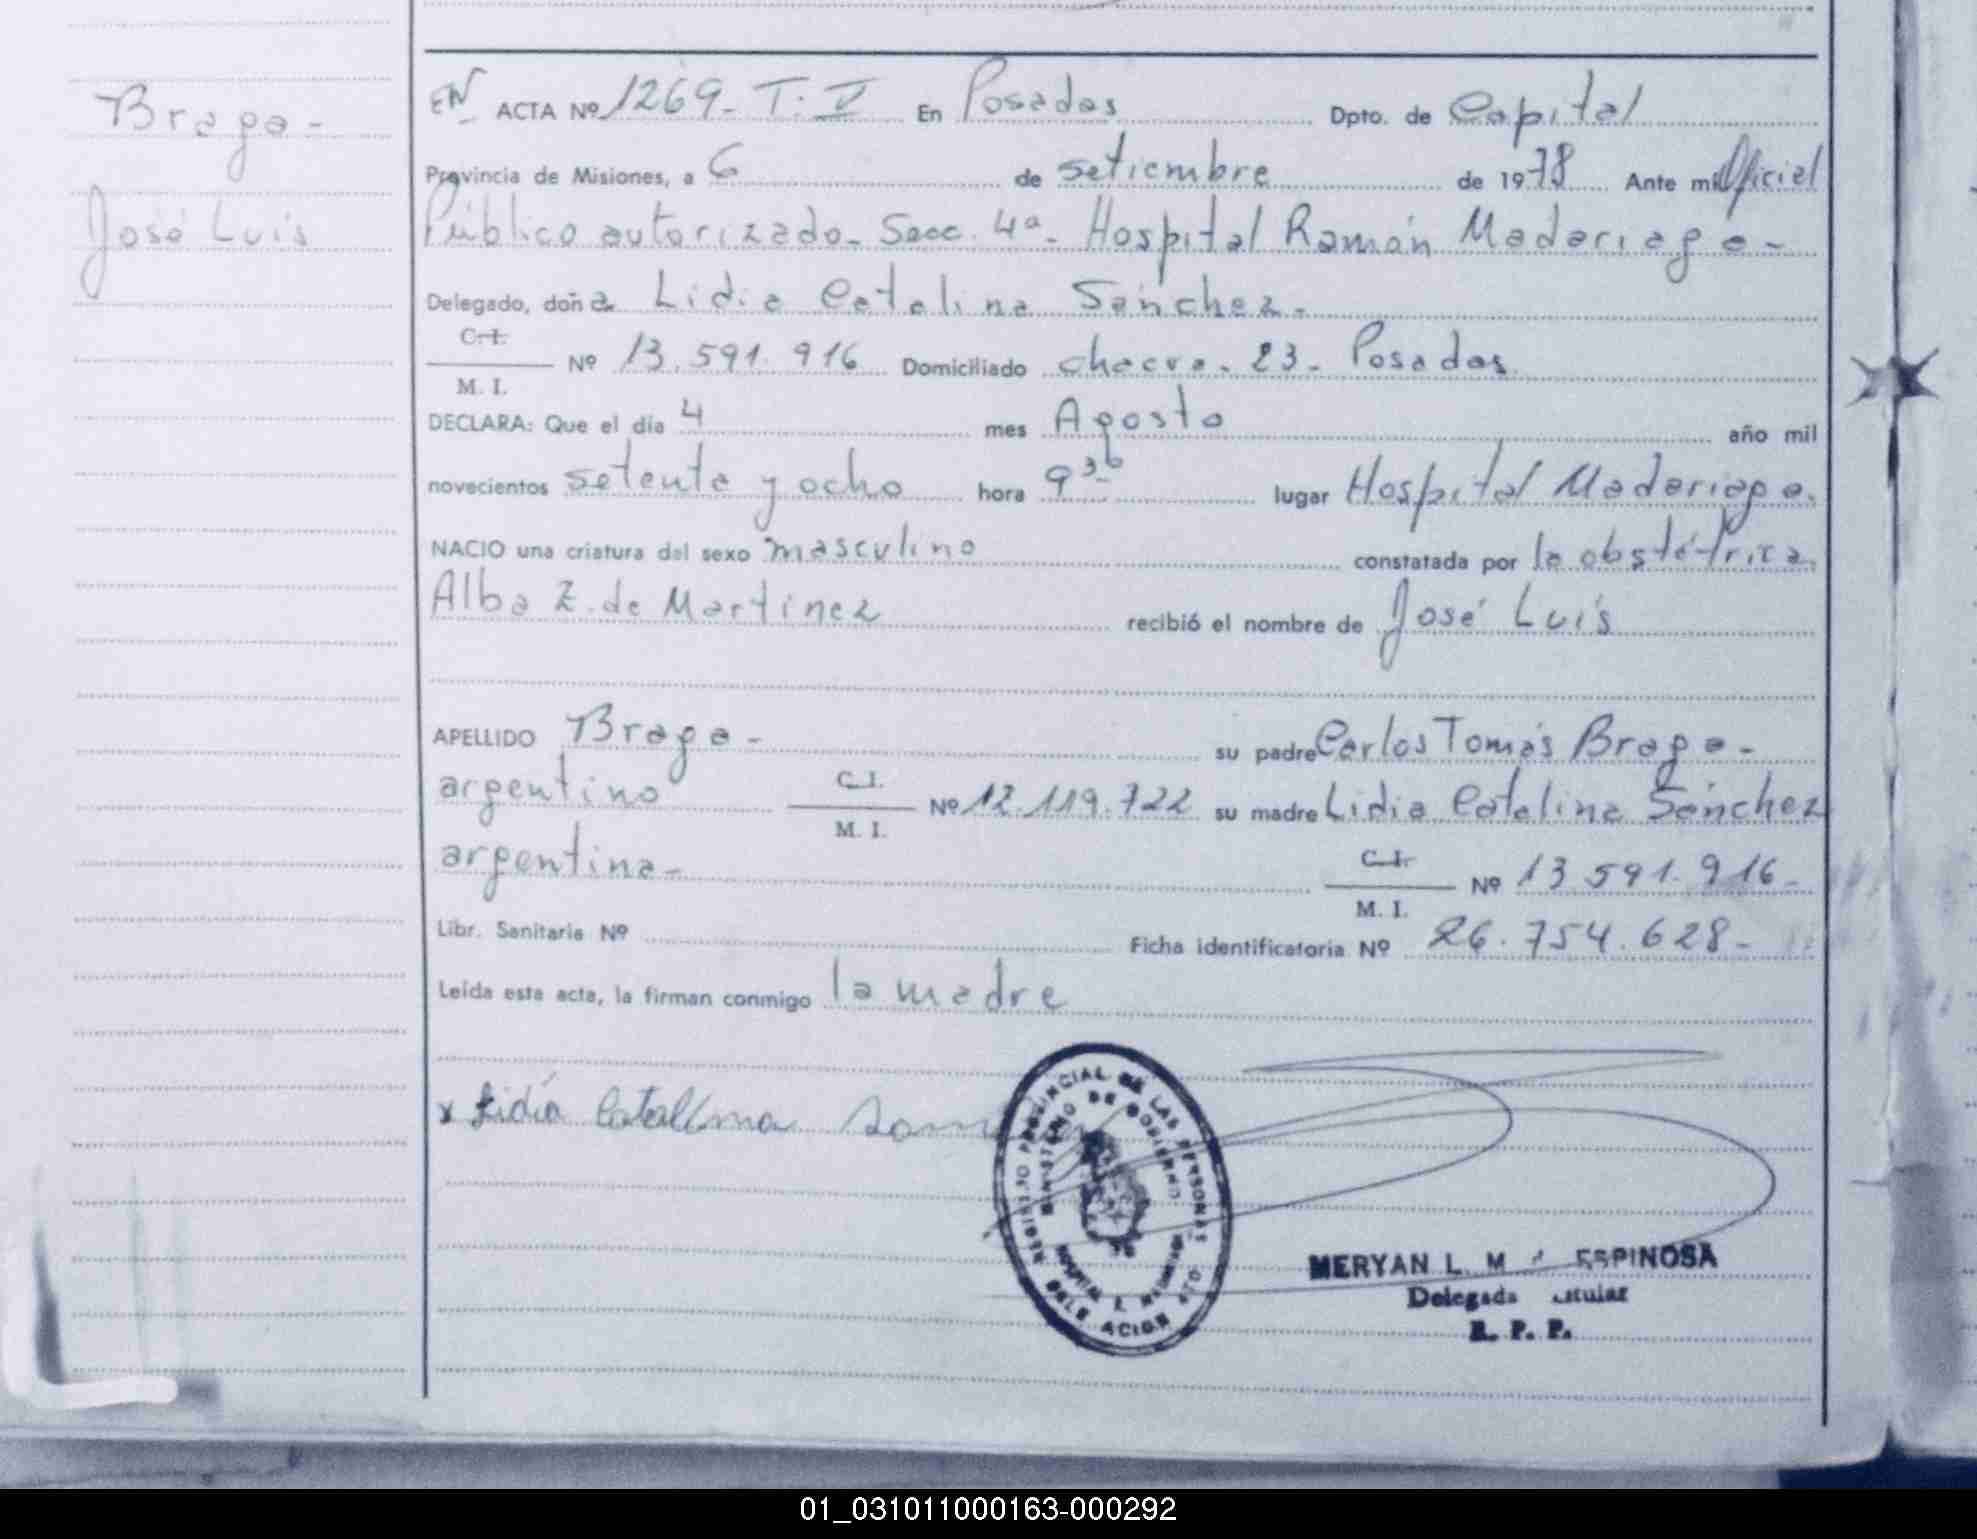 Braga-
José Luis
EN ACTA Nº 1269- T. V En Posadas Dpto. de Capital
Provincia de Misiones, a 6 de setiembre de 1978 Ante mi Oficial
Público autorizado- Secc. 4ª- Hospital Ramón Madariaga-
Delegado, doña Lidia Catalina Sánchez-
C.I.
M. I. Nº 13.591.916 Domiciliado chacra- 23- Posadas
DECLARA: Que el día 4 mes Agosto año mil
novecientos setenta y ocho hora 9 30 lugar Hospital Madariaga.
NACIO una criatura del sexo masculino constatada por la obstétrica
Alba Z. de Martínez recibió el nombre de José Luís
APELLIDO Braga- su padre Carlos Tomás Braga-
argentino C.I. M. I. Nº 12.119.722 su madre Lidia Catalina Sánchez
argentina- C.I. M. I. Nº 13 591.916-
Libr. Sanitaria Nº Ficha identificatoria Nº 26.754.628-
Leída esta acta, la firman conmigo la madre
x Lidia Catallina
REGISTRO PROVINCIAL DE LAS PERSONAS
MINISTERIO DE GOBIERNO
HOSPITAL R. MADARIAGA
MERYAN L. M ESPINOSA
Delegada
R. P. P.
01_031011000163-000292